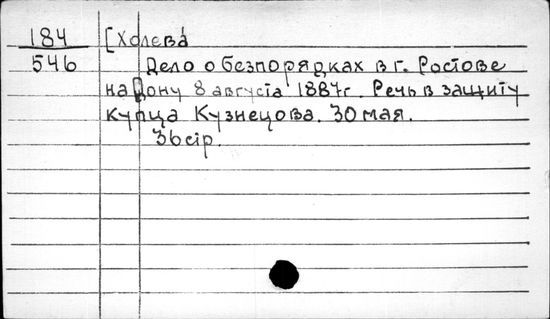 184
546
[Холева
Дело о беспорядках в г. Ростове
на Дону 8 августа 1887г. Речь в защиту
купца Кузнецова. 30 мая.
36 стр.